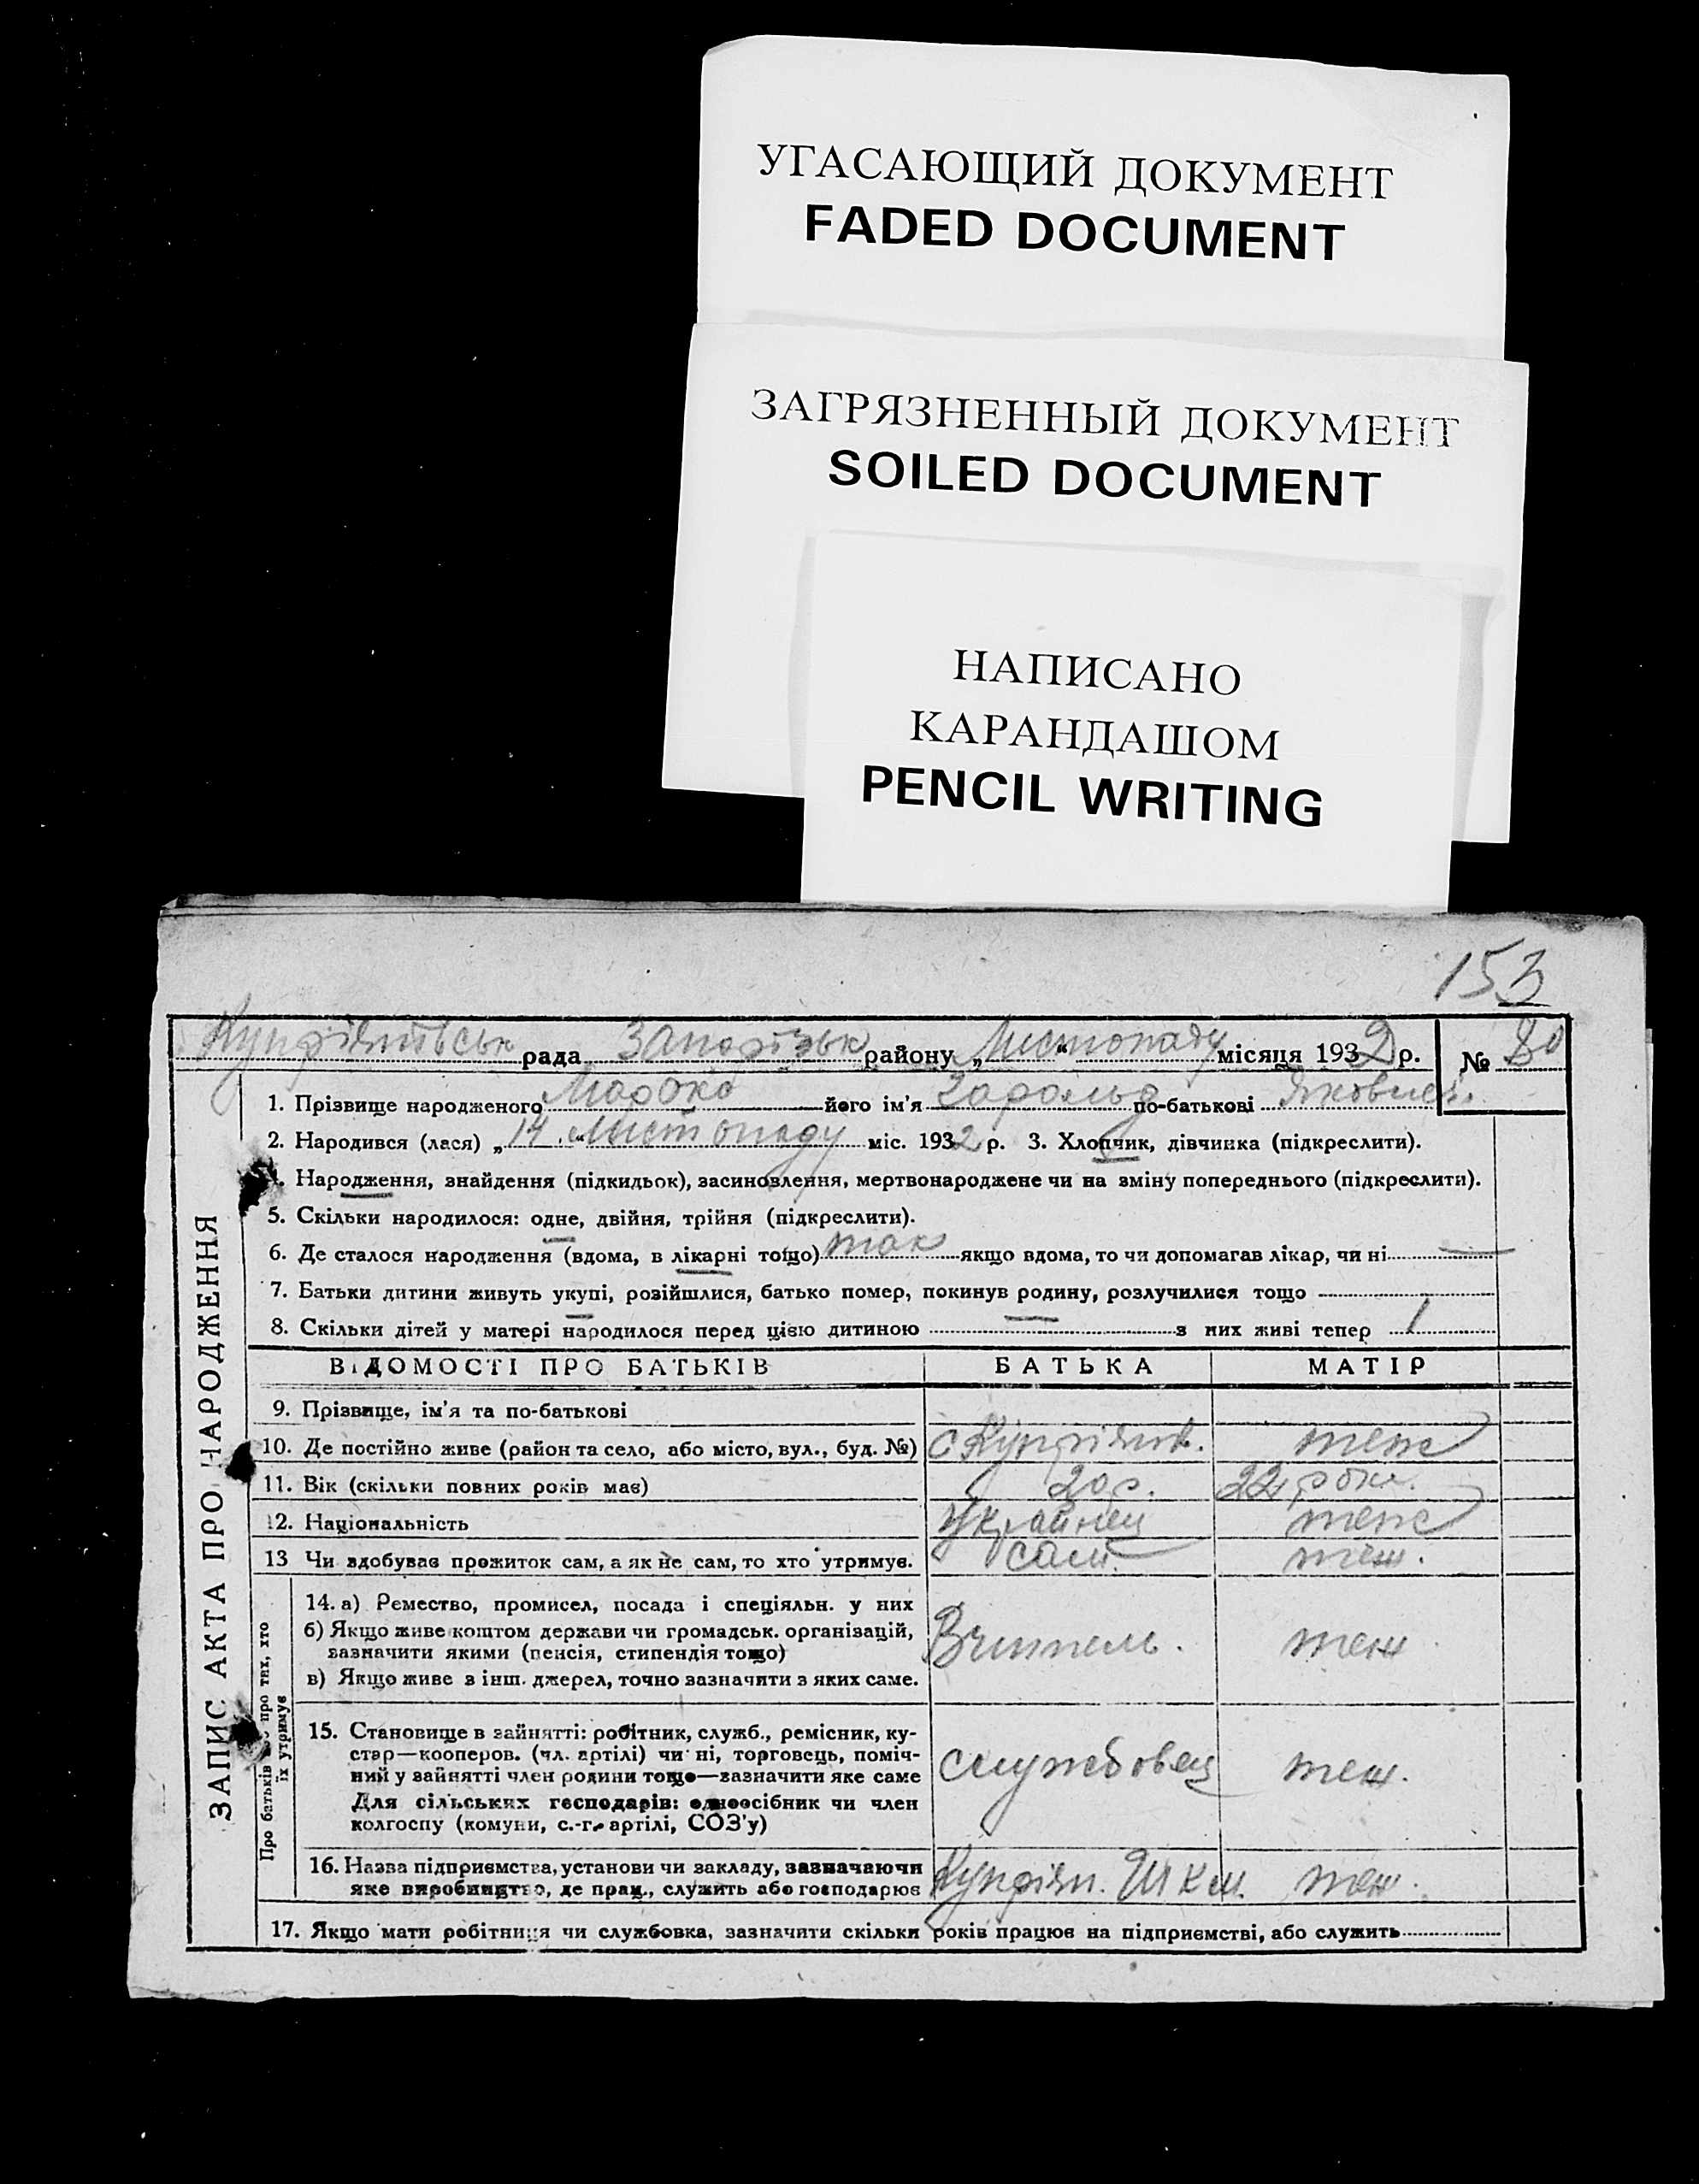 УГАСАЮЩИЙ ДОКУМЕНТ
FADED DOCUMENT
ЗАГРЯЗНЕННЫЙ ДОКУМЕНТ
SOILED DOCUMENT
НАПИСАНО
КАРАНДАШОМ
PENCIL WRITING
153
Купріянівськ рада Запорізьк району „ “ Листопаду місяця 1932 р. № 80
1. Прізвище народженого Мороко його ім'я Гарольд по-батькові Яковлев.
2. Народився (лася) „14“ Листопаду міс. 1932 р. 3. Хлопчик, дівчинка (підкреслити).
4. Народження, знайдення (підкидьок), засиновлення, мертвонароджене чи на зміну попереднього (підкреслити).
5. Скільки народилося: одне, двійня, трійня (підкреслити).
6. Де сталося народження (вдома, в лікарні тощо) так якщо вдома, то чи допомагав лікар, чи ні —
7. Батьки дитини живуть укупі, розійшлися, батько помер, покинув родину, розлучилися тощо
8. Скільки дітей у матері народилося перед цією дитиною — з них живі тепер 1
ВІДОМОСТІ ПРО БАТЬКІВ БАТЬКА МАТІР
9. Прізвище, ім'я та по-батькові
10. Де постійно живе (район та село, або місто, вул., буд. №) с Купріянів. теж
11. Вік (скільки повних років має) 20 р. 22 роки.
12. Національність Українец теж
13 Чи здобував прожиток сам, а як не сам, то хто утримує. сам. теж.
14. а) Ремество, промисел, посада і спеціяльн. у них
б) Якщо живе коштом держави чи громадськ. організацій,
зазначити якими (пенсія, стипендія тощо)
в) Якщо живе з інш. джерел, точно зазначити з яких саме.
Вчитель. теж
15. Становище в зайнятті: робітник, служб., ремісник, ку-
стар—кооперов. (чл. артілі) чи ні, торговець, поміч-
ний у зайнятті член родини тоще—зазначити яке саме
Для сільських господарів: одноосібник чи член
колгоспу (комуни, с.-г. артілі, СОЗ'у)
службовец теж.
16. Назва підприємства, установи чи закладу, зазначаючи
яке виробництво, де прац., служить або господарює
Купріян. ШКМ. теж.
17. Якщо мати робітниця чи службовка, зазначити скільки років працює на підприємстві, або служить
ЗАПИС АКТА ПРО НАРОДЖЕННЯ
Про батьків або про тих, хто
їх утримує